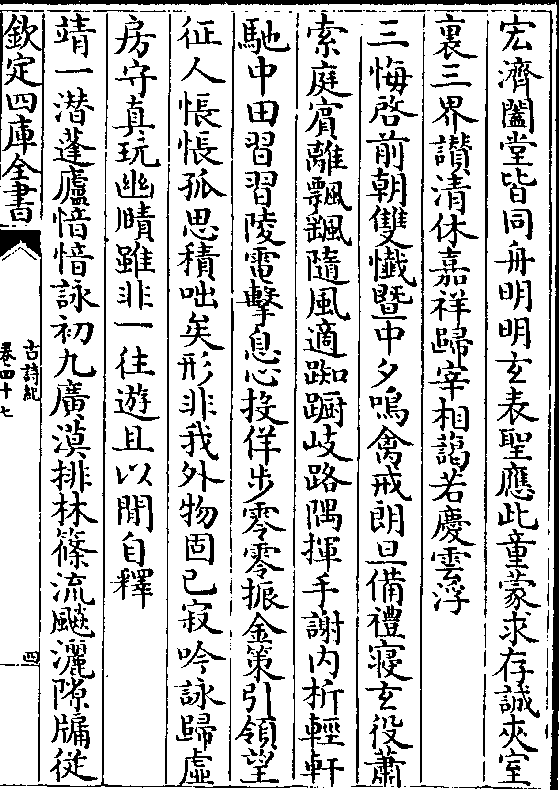 宏濟闔堂皆同舟明明玄表聖應此童蒙求存誠夾室
裏三界讃清休嘉祥歸宰相藹若慶雲浮
三悔啓前朝雙懺暨中夕鳴禽戒朗旦備禮寢玄役蕭
索庭賔離飄飄隨風適踟蹰岐路隅揮手謝内析輕軒
馳中田習習陵電擊息心投佯步零零振金策引領望
征人悵悵孤思積咄矣形非我外物固已寂吟詠歸虚
房守真玩幽賾雖非一往遊且以閒自釋
靖一潛蓬廬愔愔詠初九廣漠排林篠流飈灑隙牖從
欽定四庫全書
古詩紀
卷四十七
四